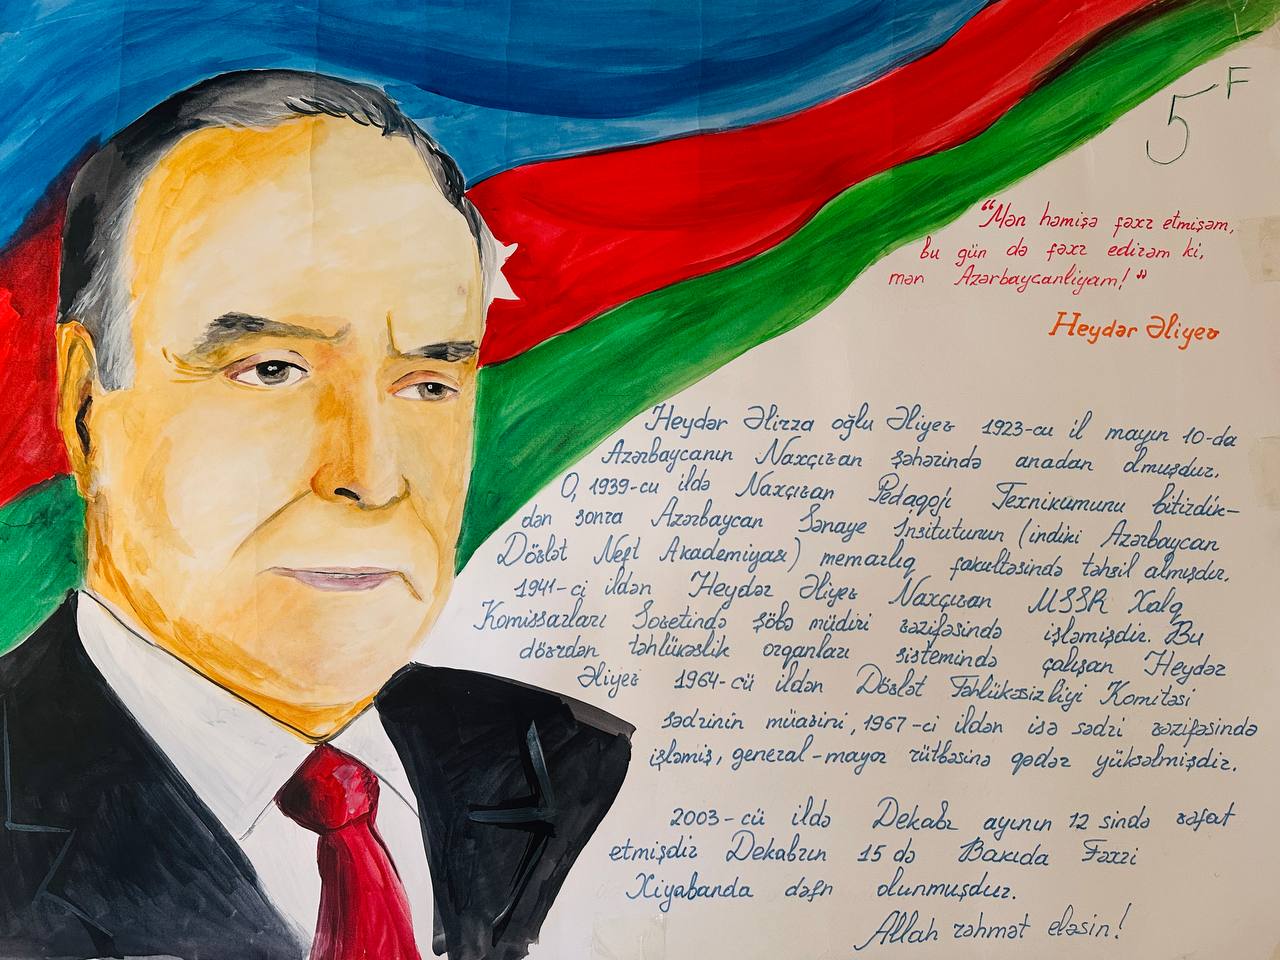 5F
“Mən həmişə fəxr etmişəm,
bu gün də fəxr edirəm ki,
mən Azərbaycanlıyam!”
Heydər Əliyev
Heydər Əlirza oğlu Əliyev 1923-cu il mayın 10-da
Azərbaycanın Naxçıvan şəhərində anadan olmuşdur.
O, 1939-cu ildə Naxçıvan Pedaqoji Texnikumunu bitirdik–
dən sonra Azərbaycan Sənaye İnsitutunun (indiki Azərbaycan
Dövlət Neft Akademiyası) memarlıq fakultəsində təhsil almışdır.
1941-ci ildən Heydər Əliyev Naxçıvan MSSR Xalq
Komissarları Sovetində şöbə müdiri vəzifəsində işləmişdir. Bu
dövrdən təhlükəslik orqanları sistemində çalışan Heydər
Əliyev 1964-cü ildən Dövlət Təhlükəsizliyi Komitəsi
sədrinin müavini, 1967-ci ildən isə sədri vəzifəsində
işləmiş, general-mayor rütbəsinə qədər yüksəlmişdir.
2003-cü ildə Dekabr ayının 12 sində vəfat
etmişdir Dekabrın 15 də Bakıda Fəxri
Xiyabanda dəfn olunmuşdur.
Allah rəhmət eləsin!